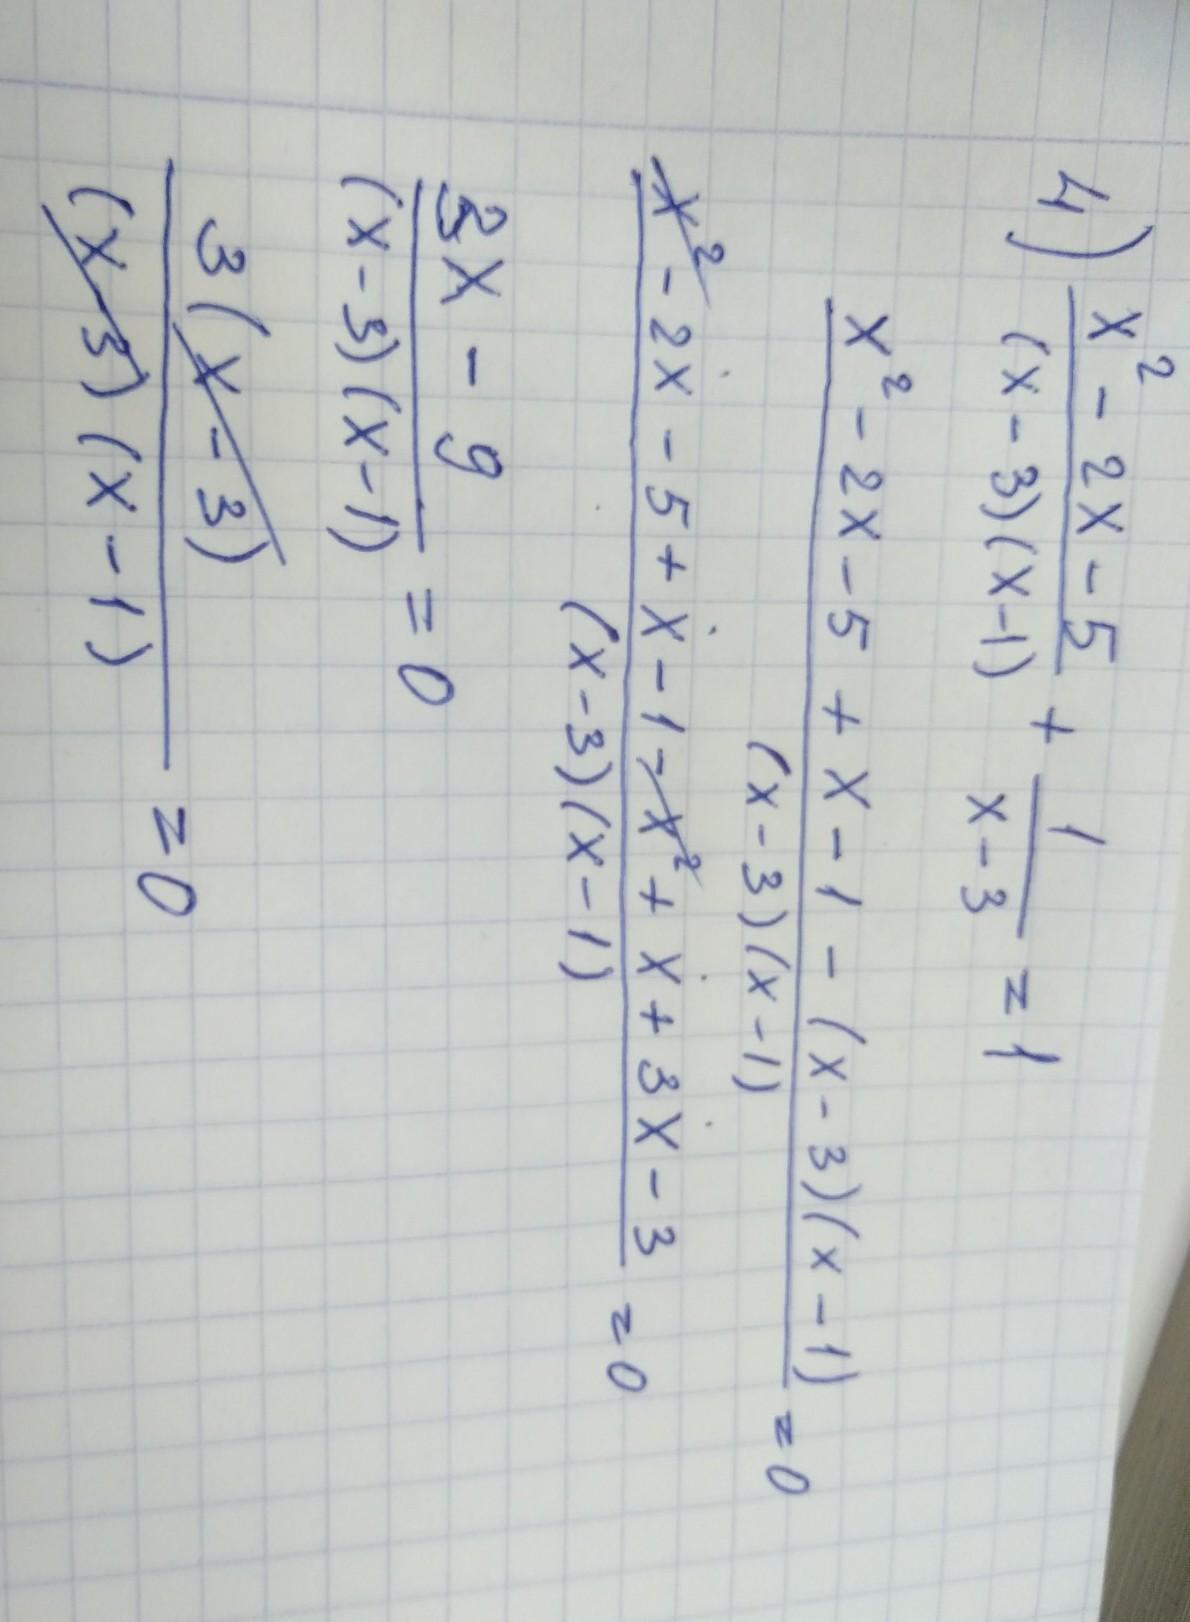 4) x² - 2x - 5 / (x - 3)(x - 1) + 1 / x - 3 = 1
x² - 2x - 5 + x - 1 - (x - 3)(x - 1) / (x - 3)(x - 1) = 0
x² - 2x - 5 + x - 1 - x² + x + 3x - 3 / (x - 3)(x - 1) = 0
3x - 9 / (x - 3)(x - 1) = 0
3(x - 3) / (x - 3)(x - 1) = 0